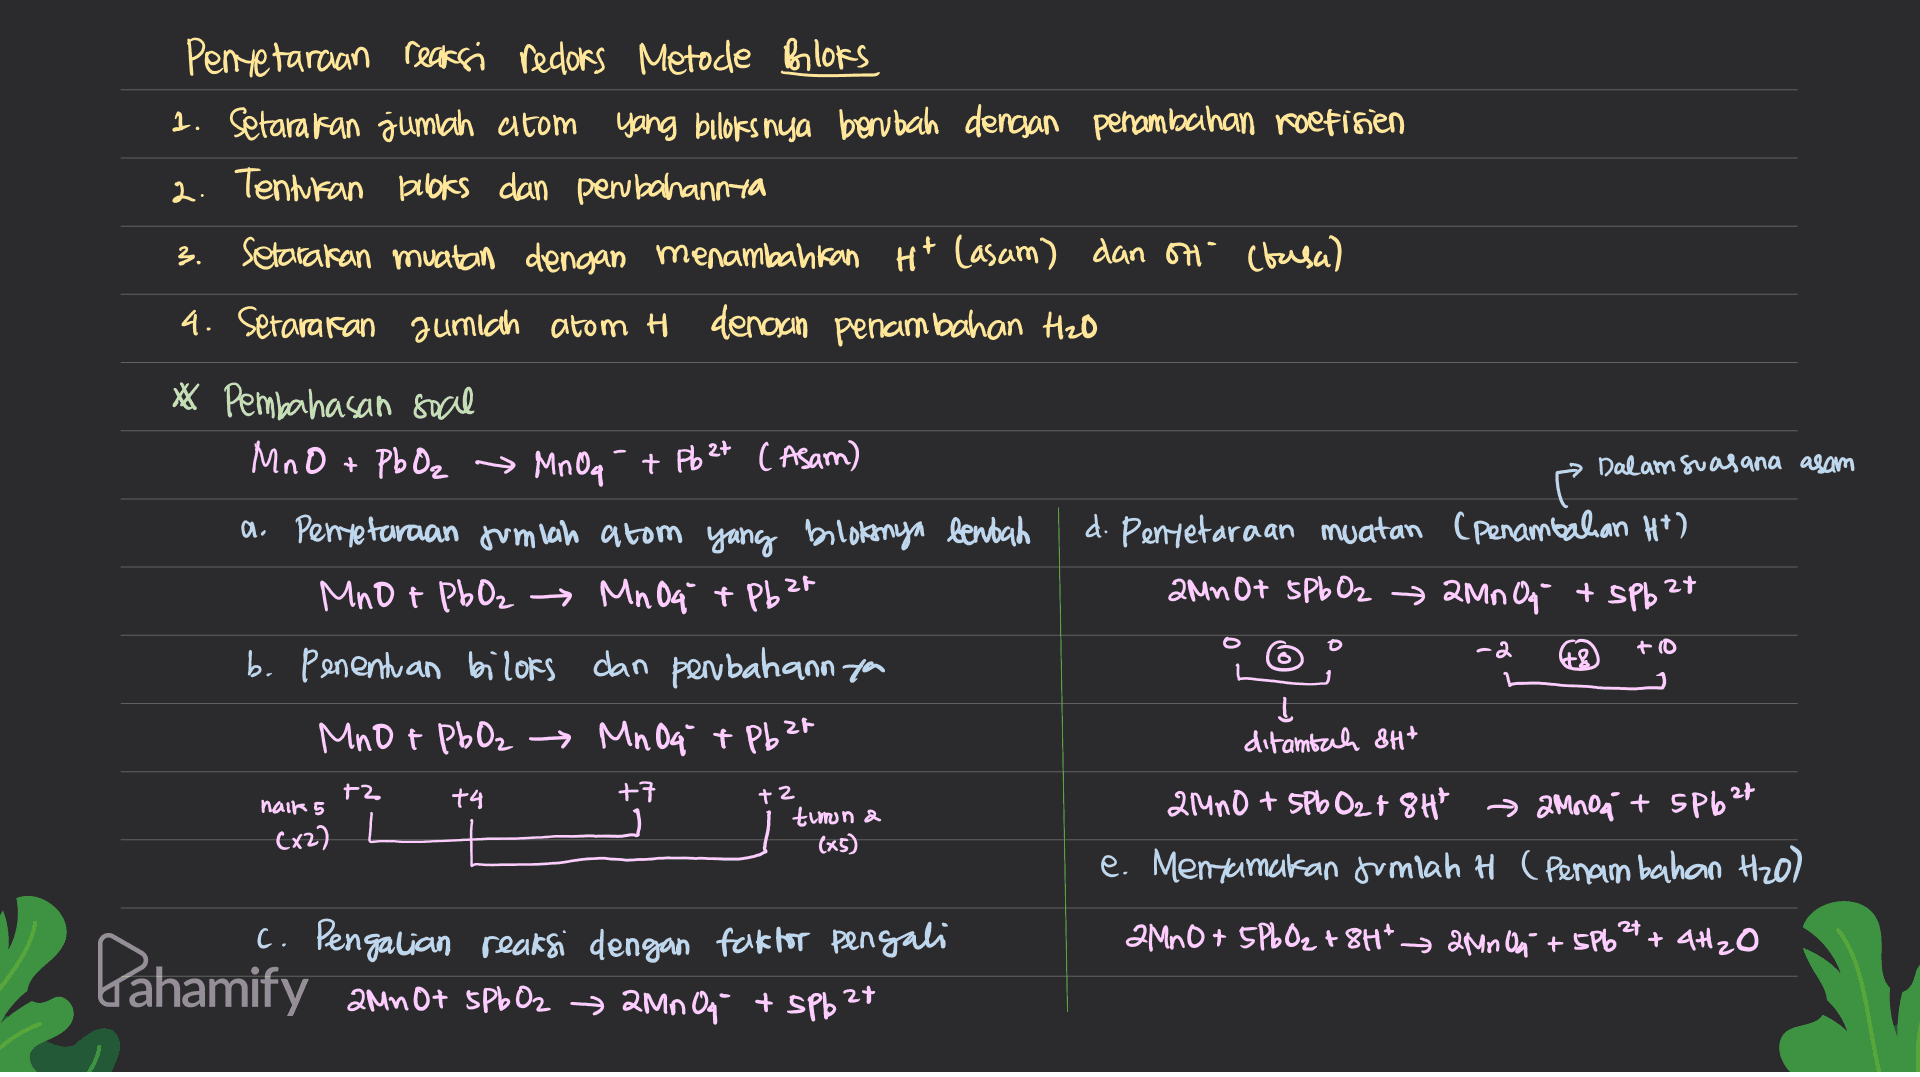 Penyetaraan reaksi redoks Metode Biloks
1. Setarakan jumlah atom yang biloksnya berubah dengan penambahan koefisien
2. Tentukan biloks dan perubahannya
3. Setarakan muatan dengan menambahkan H⁺ (asam) dan OH⁻ (basa)
4. Setarakan jumlah atom H dengan penambahan H₂O
※ Pembahasan soal
MnO + PbO₂ → MnO₄⁻ + Pb²⁺ (Asam)
a. Penyetaraan jumlah atom yang biloksnya berubah
MnO + PbO₂ → MnO₄⁻ + Pb²⁺
b. Penentuan biloks dan perubahannya
MnO + PbO₂ → MnO₄⁻ + Pb²⁺
+2 +4 +7 +2
naik 5 turun 2
(x2) (x5)
c. Pengalian reaksi dengan faktor pengali
2MnO + 5PbO₂ → 2MnO₄⁻ + 5Pb²⁺
Dalam suasana asam
d. Penyetaraan muatan (penambahan H⁺)
2MnO + 5PbO₂ → 2MnO₄⁻ + 5Pb²⁺
0 0 0 -2 +8 +10
ditambah 8H⁺
2MnO + 5PbO₂ + 8H⁺ → 2MnO₄⁻ + 5Pb²⁺
e. Menyamakan jumlah H (Penambahan H₂O)
2MnO + 5PbO₂ + 8H⁺ → 2MnO₄⁻ + 5Pb²⁺ + 4H₂O
Pahamify